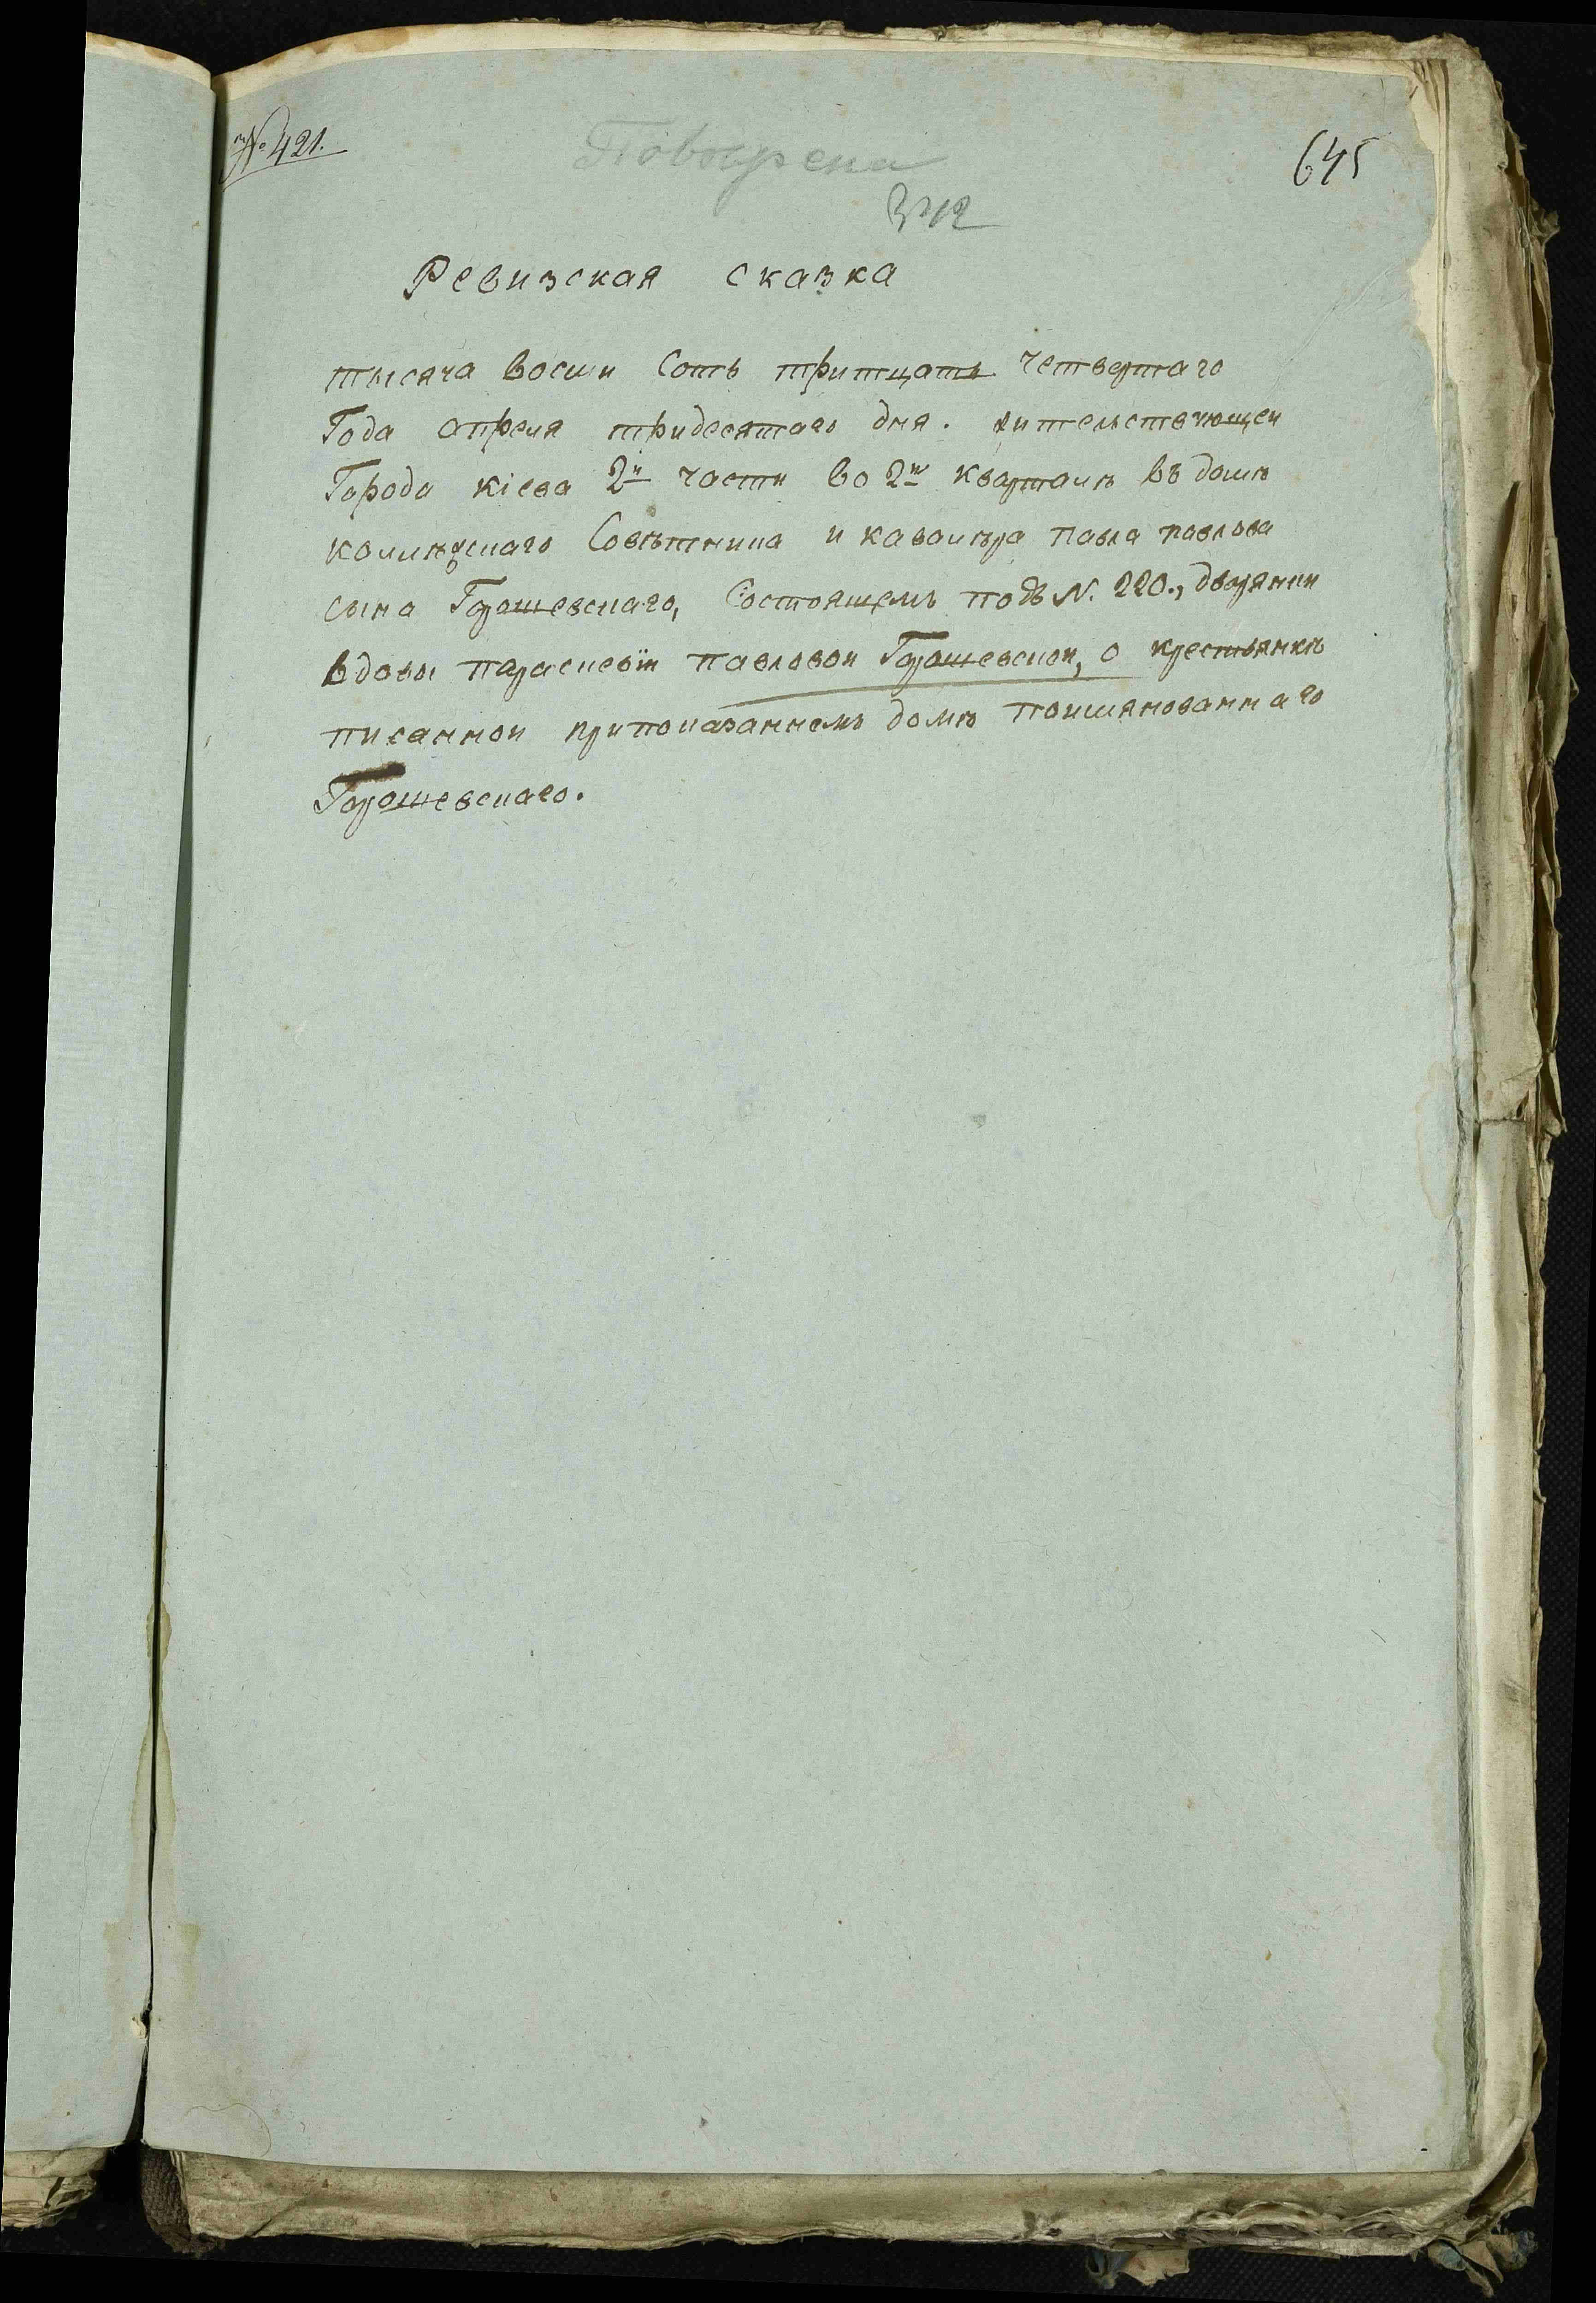 № 421.
Повѣрена
645
Ревизская сказка
тысяча восми сотъ тритцать четвертаго
Года апреля тридесятаго дня. жительствующеи
Города кіева 2й части во 2м кварталѣ въ домѣ
коллѣжскаго Совѣтника и кавалѣра павла павлова
сына Горошевскаго, Состоящемъ подъ N. 220., дворянки
вдовы параскевiи павловои Горошевскои, о крестьянкѣ
писаннои припоказаннемъ домѣ поимянованнаго
Горошевскаго.